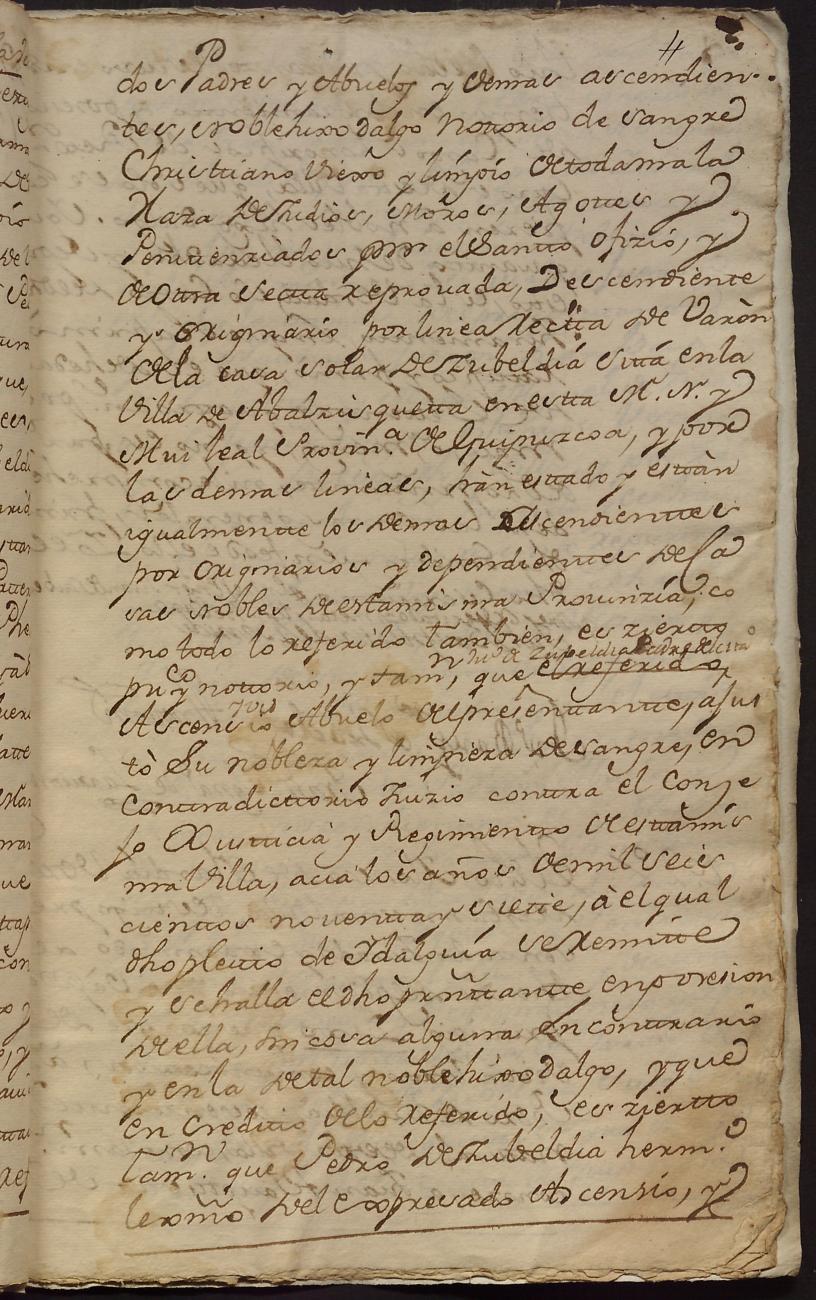 dos Padres y Abuelos y demas ascendien-
tes, noble hixo dalgo Notorio de sangre
Christtiano Viexo y límpio de toda mala
Raza de Judios, Moros, Agottes y
Penitenziados por el Santto ofizio, y
de Otra Sectta reprovada, Descendiente
y Originario por linea Rectta de Varòn
de la casa solar de Zubeldiá sittá en la
Villa de Abalzisquetta en estta M. N. y
Mui leal Provin.ª de Guipuzcoa, y por
las demas lineas, hàn esttado y esttàn
igualmentte los demas Ascendienttes
por Originarios y dependienttes de Ca
sas nobles de esta misma Provinzia, co
mo todo lo referido tambien, es ziertto
pu.co y nottorio, y tam.n, que el referido
Ascensio Abuelo del presenttantte, ajus
tò Su nobleza y limpieza de sangre, en
Conttradicttorio Juizio conttra el Conze
jo Justticia y Regimientto de esttá mis
ma Villa, acia los años de mil seis
cienttos noventta y siette, à el qual
dho pleitto de Ydalguia se Remitte
y se halla el dho prñttantte en posesion
de ella, sin cosa alguna en conttrario
y en la de tal noble hixo dalgo, y que
en Creditto de lo Referido, es ziertto
Tam.n que Pedro de Zubeldia herm.º
lexmò del expresado Ascensio, y